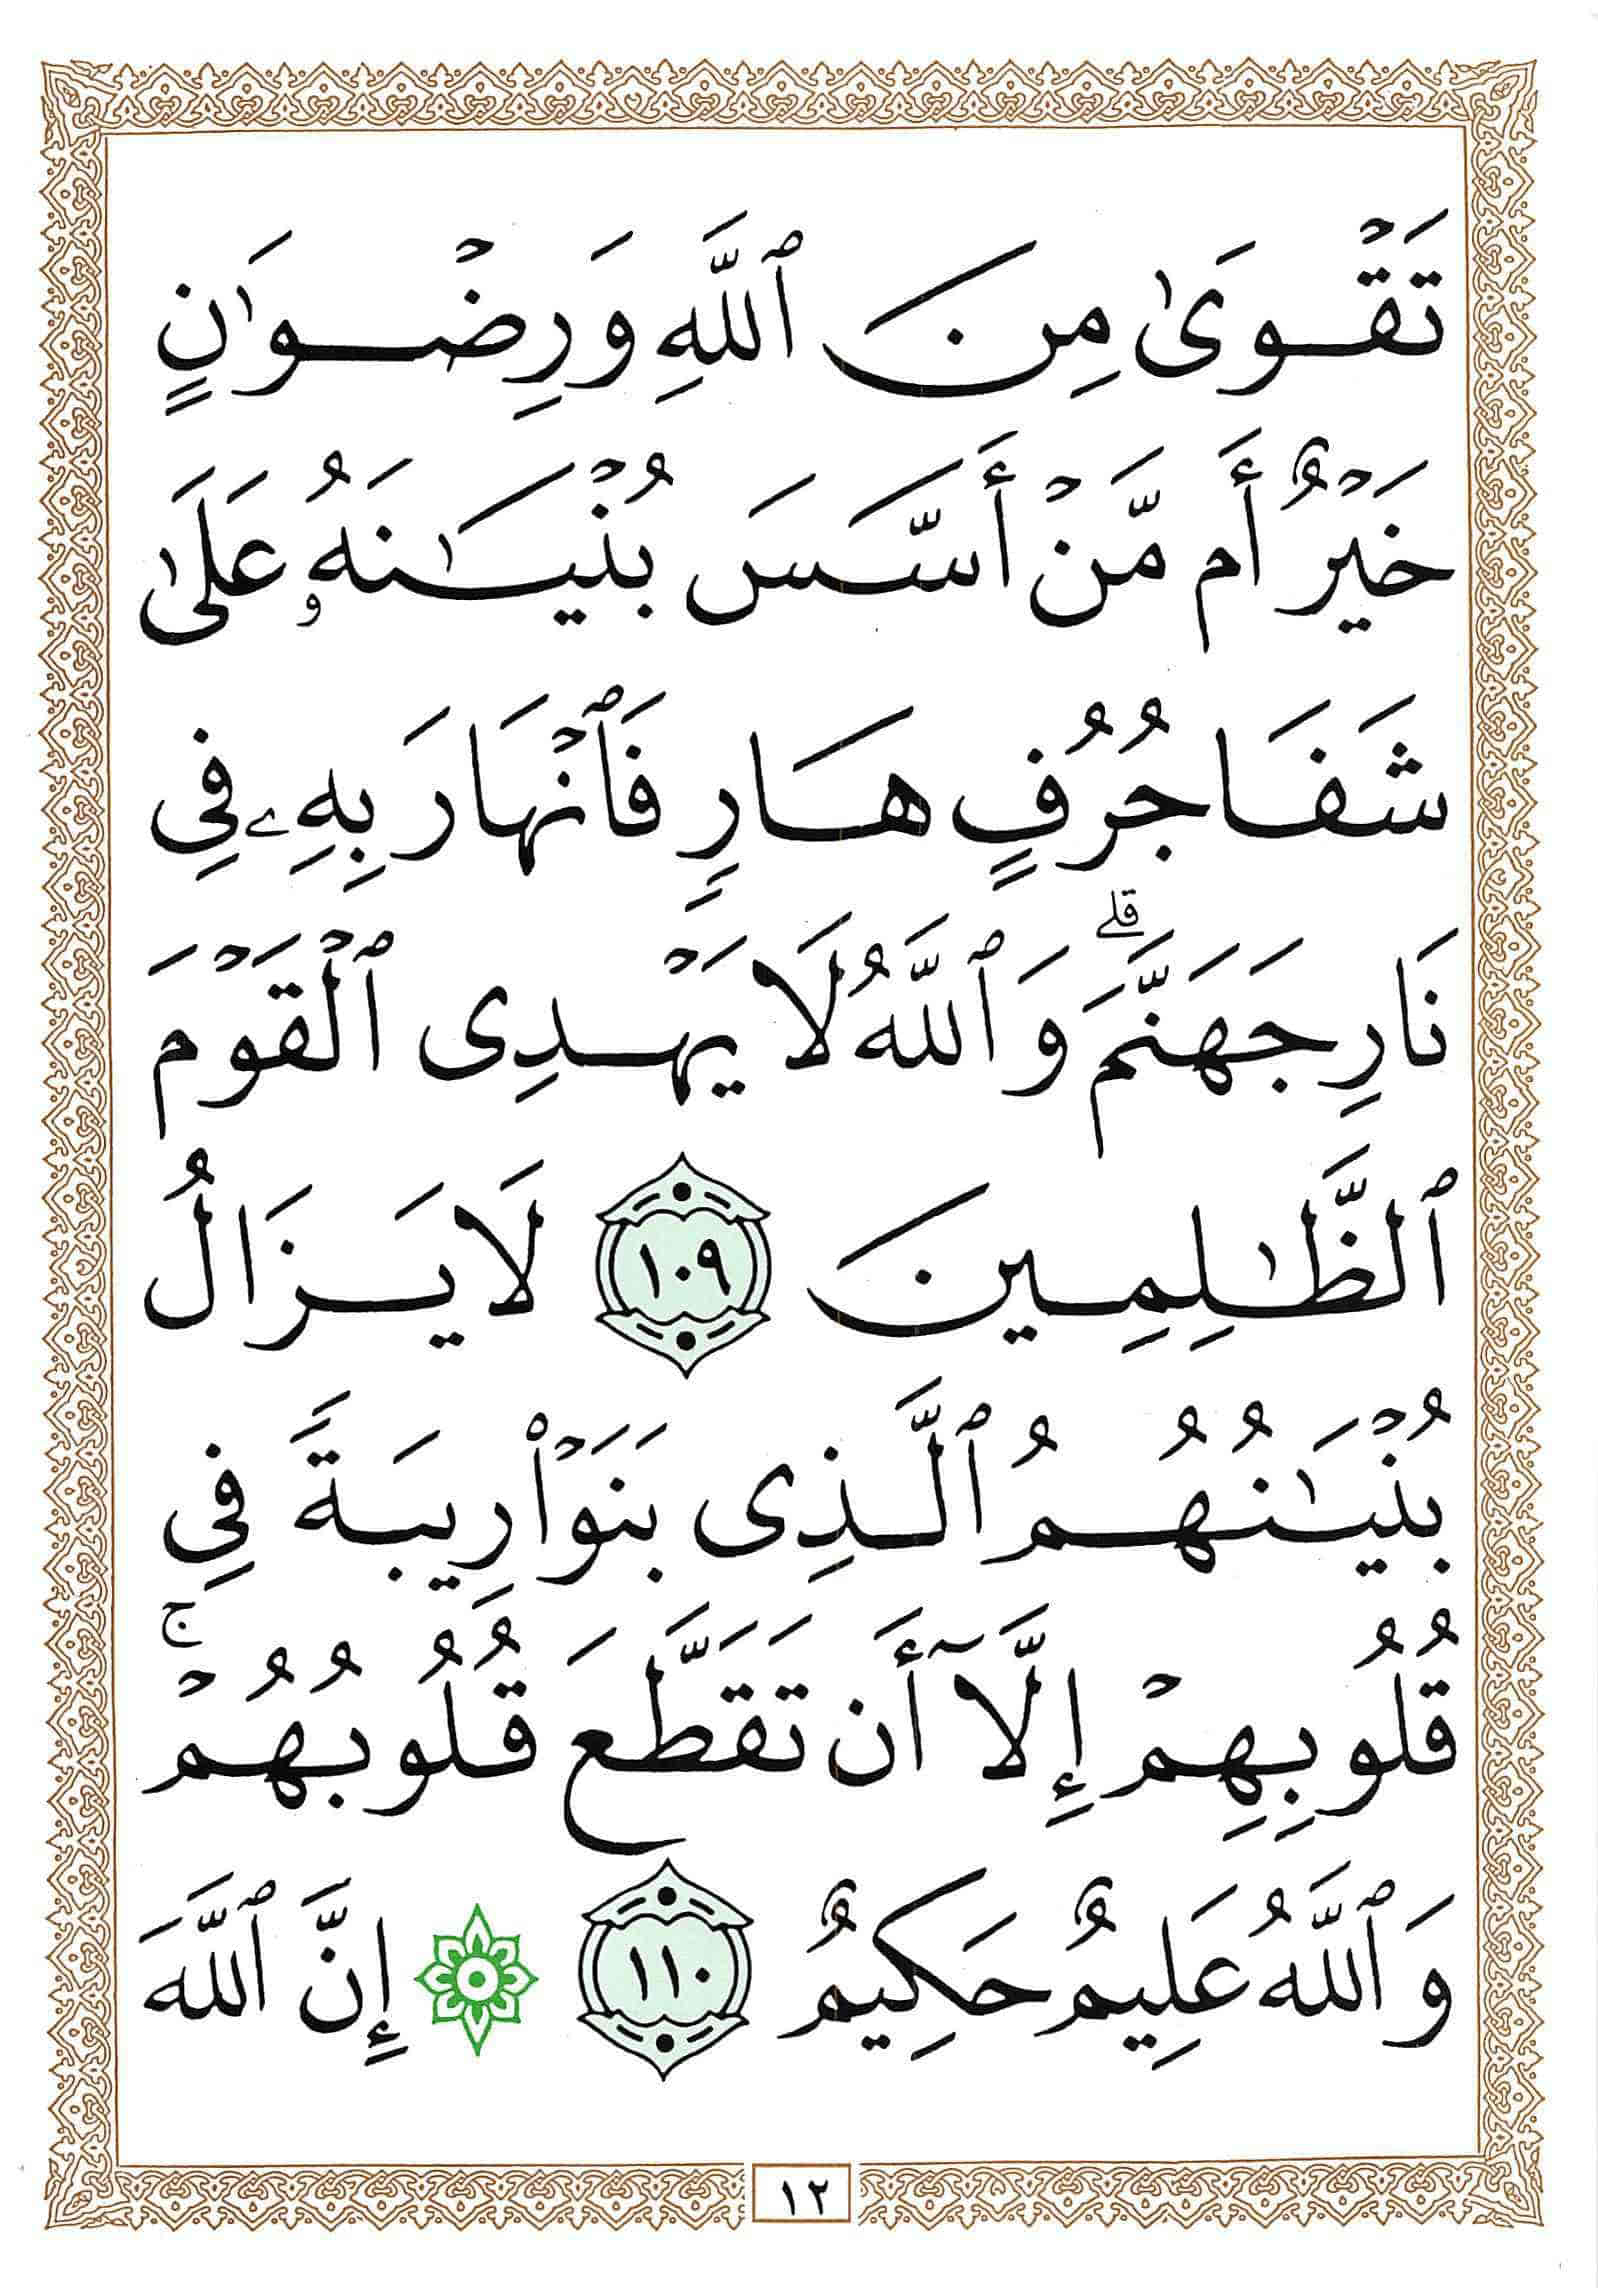 تَقۡوَىٰ مِنَ ٱللَّهِ وَرِضۡوَٰنٍ
خَيۡرٌ أَم مَّنۡ أَسَّسَ بُنۡيَـٰنَهُۥ عَلَىٰ
شَفَا جُرُفٍ هَارٍ فَٱنۡهَارَ بِهِۦ فِي
نَارِ جَهَنَّمَۗ وَٱللَّهُ لَا يَهۡدِى ٱلۡقَوۡمَ
ٱلظَّـٰلِمِينَ ١٠٩ لَا يَزَالُ
بُنۡيَـٰنُهُمُ ٱلَّذِى بَنَوۡاْ رِيبَةً فِي
قُلُوبِهِمۡ إِلَّآ أَن تَقَطَّعَ قُلُوبُهُمۡۚ
وَٱللَّهُ عَلِيمٌ حَكِيمٌ ١١٠ إِنَّ ٱللَّهَ
١٢